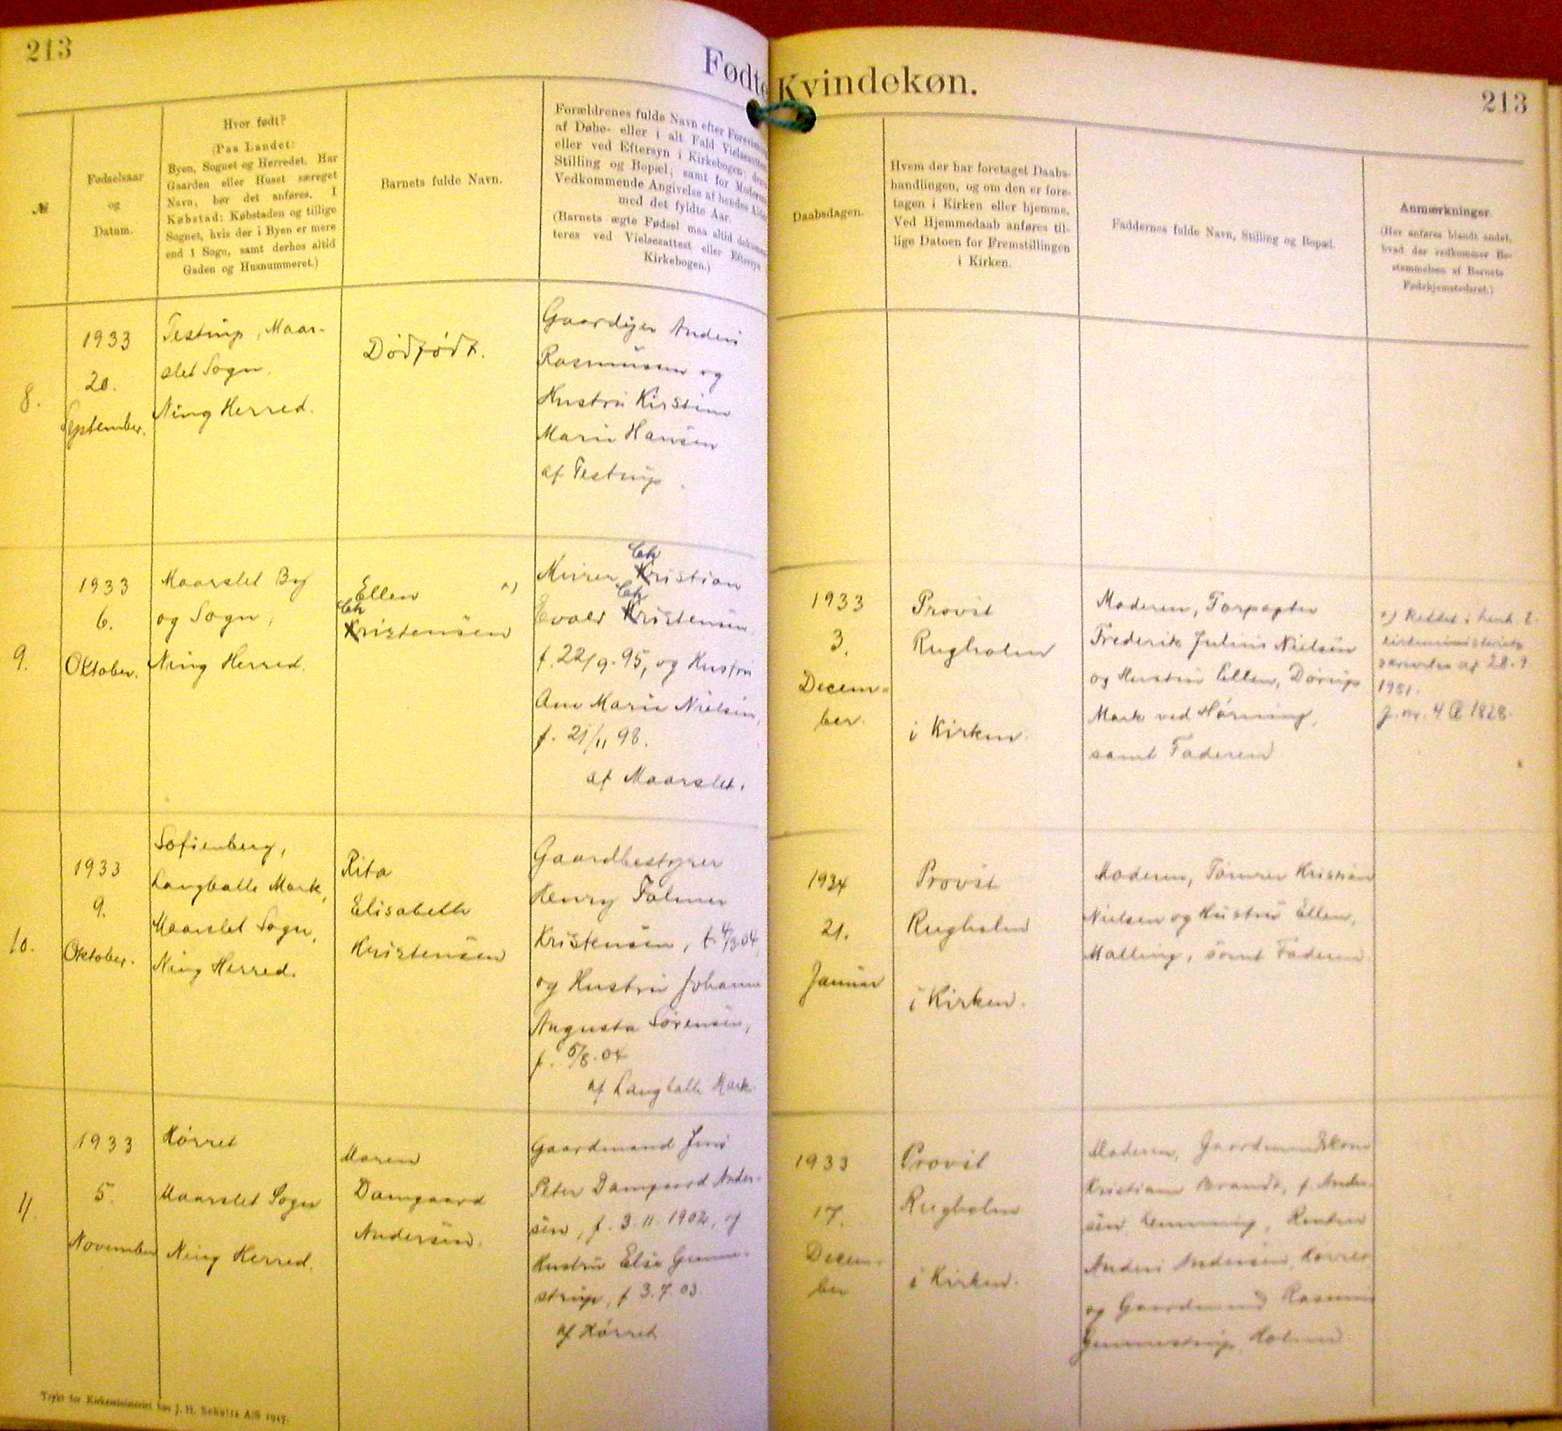 213
Fødte
Kvindekøn.
213
№
Fødselsaar
og
Datum.
Hvor født?
(Paa Landet:
Byen, Sognet og Herredet. Har
Gaarden eller Huset særeget
Navn, bør det anføres. I
Købstad: Købstaden og tillige
Sognet, hvis der i Byen er mere
end 1 Sogn, samt derhos altid
Gaden og Husnummeret.)
Barnets fulde Navn.
Forældrenes fulde Navn efter
af Døbe- eller i alt Fald
eller ved Eftersyn i Kirkebogen;
Stilling og Bopæl; samt for
Vedkommende Angivelse af hendes
med det fyldte Aar.
(Barnets ægte Fødsel maa altid
teres ved Vielsesattest eller Eftersyn
Kirkebogen.)
Daabsdagen.
Hvem der har foretaget Daabs-
handlingen, og om den er fore-
tagen i Kirken eller hjemme.
Ved Hjemmedaab anføres til-
lige Datoen for Fremstillingen
i Kirken.
Faddernes fulde Navn, Stilling og Bopæl.
Anmærkninger.
(Her anføres blandt andet,
hvad der vedkommer Be-
stemmelsen af Barnets
Fødehjemstedsret.)
8.
1933
20.
September.
Testrup, Maar-
slet Sogn.
Ning Herred.
Dødfødt.
Gaardejer Anders
Rasmussen og
Hustru Kirstine
Marie Hansen
af Testrup.
9.
1933
6.
Oktober.
Maarslet By
og Sogn,
Ning Herred.
Ellen
Ch
Kristensen
Ch
Murer Kristian
Ch
Evald Kristensen
f. 22/9. 95, og Hustru
Ane Marie Nielsen,
f. 21/11 98.
af Maarslet.
1933
3.
Decem-
ber.
Provst
Rugholm
i Kirken.
Moderen, Forpagter
Frederik Julius Nielsen
og Hustru Ellen, Dørup
Mark ved Hørning,
samt Faderen
Rettet i henh. t.
kirkeministeriets
af 28.9
1981.
j. nr. 4 1828.
10.
1933
9.
Oktober.
Sofienberg,
Langballe Mark,
Maarslet Sogn,
Ning Herred.
Rita
Elisabeth
Kristensen
Gaardbestyrer
Henry Folmer
Kristensen, f. 4/3 04
og Hustru Johanne
Augusta Sørensen,
f. 5/8. 04
af Langballe Mark
1934
21.
Januar
Provst
Rugholm
i Kirken.
Moderen, Tømrer Kristian
Nielsen og Hustru Ellen,
Malling, samt Faderen
11.
1933
5.
November
Hørret
Maarslet Sogn
Ning Herred.
Maren
Damgaard
Andersen.
Gaardmand Jens
Peter Damgaard Ander-
sen, f. 3. 11. 1902, og
Hustru Else Gumme-
strup, f 3. 7. 03.
af Hørret
1933
17.
Decem-
ber
Provst
Rugholm
i Kirken.
Moderen, Gaardmandskone
Kristiane Brandt, f. Ander-
sen, Lemming,
Anders Andersen, Hørret
og Gaardmand Rasmus
Gummestrup, Holme
Trykt for Kirkeministeriet hos J. H. Schultz A/S 1917.